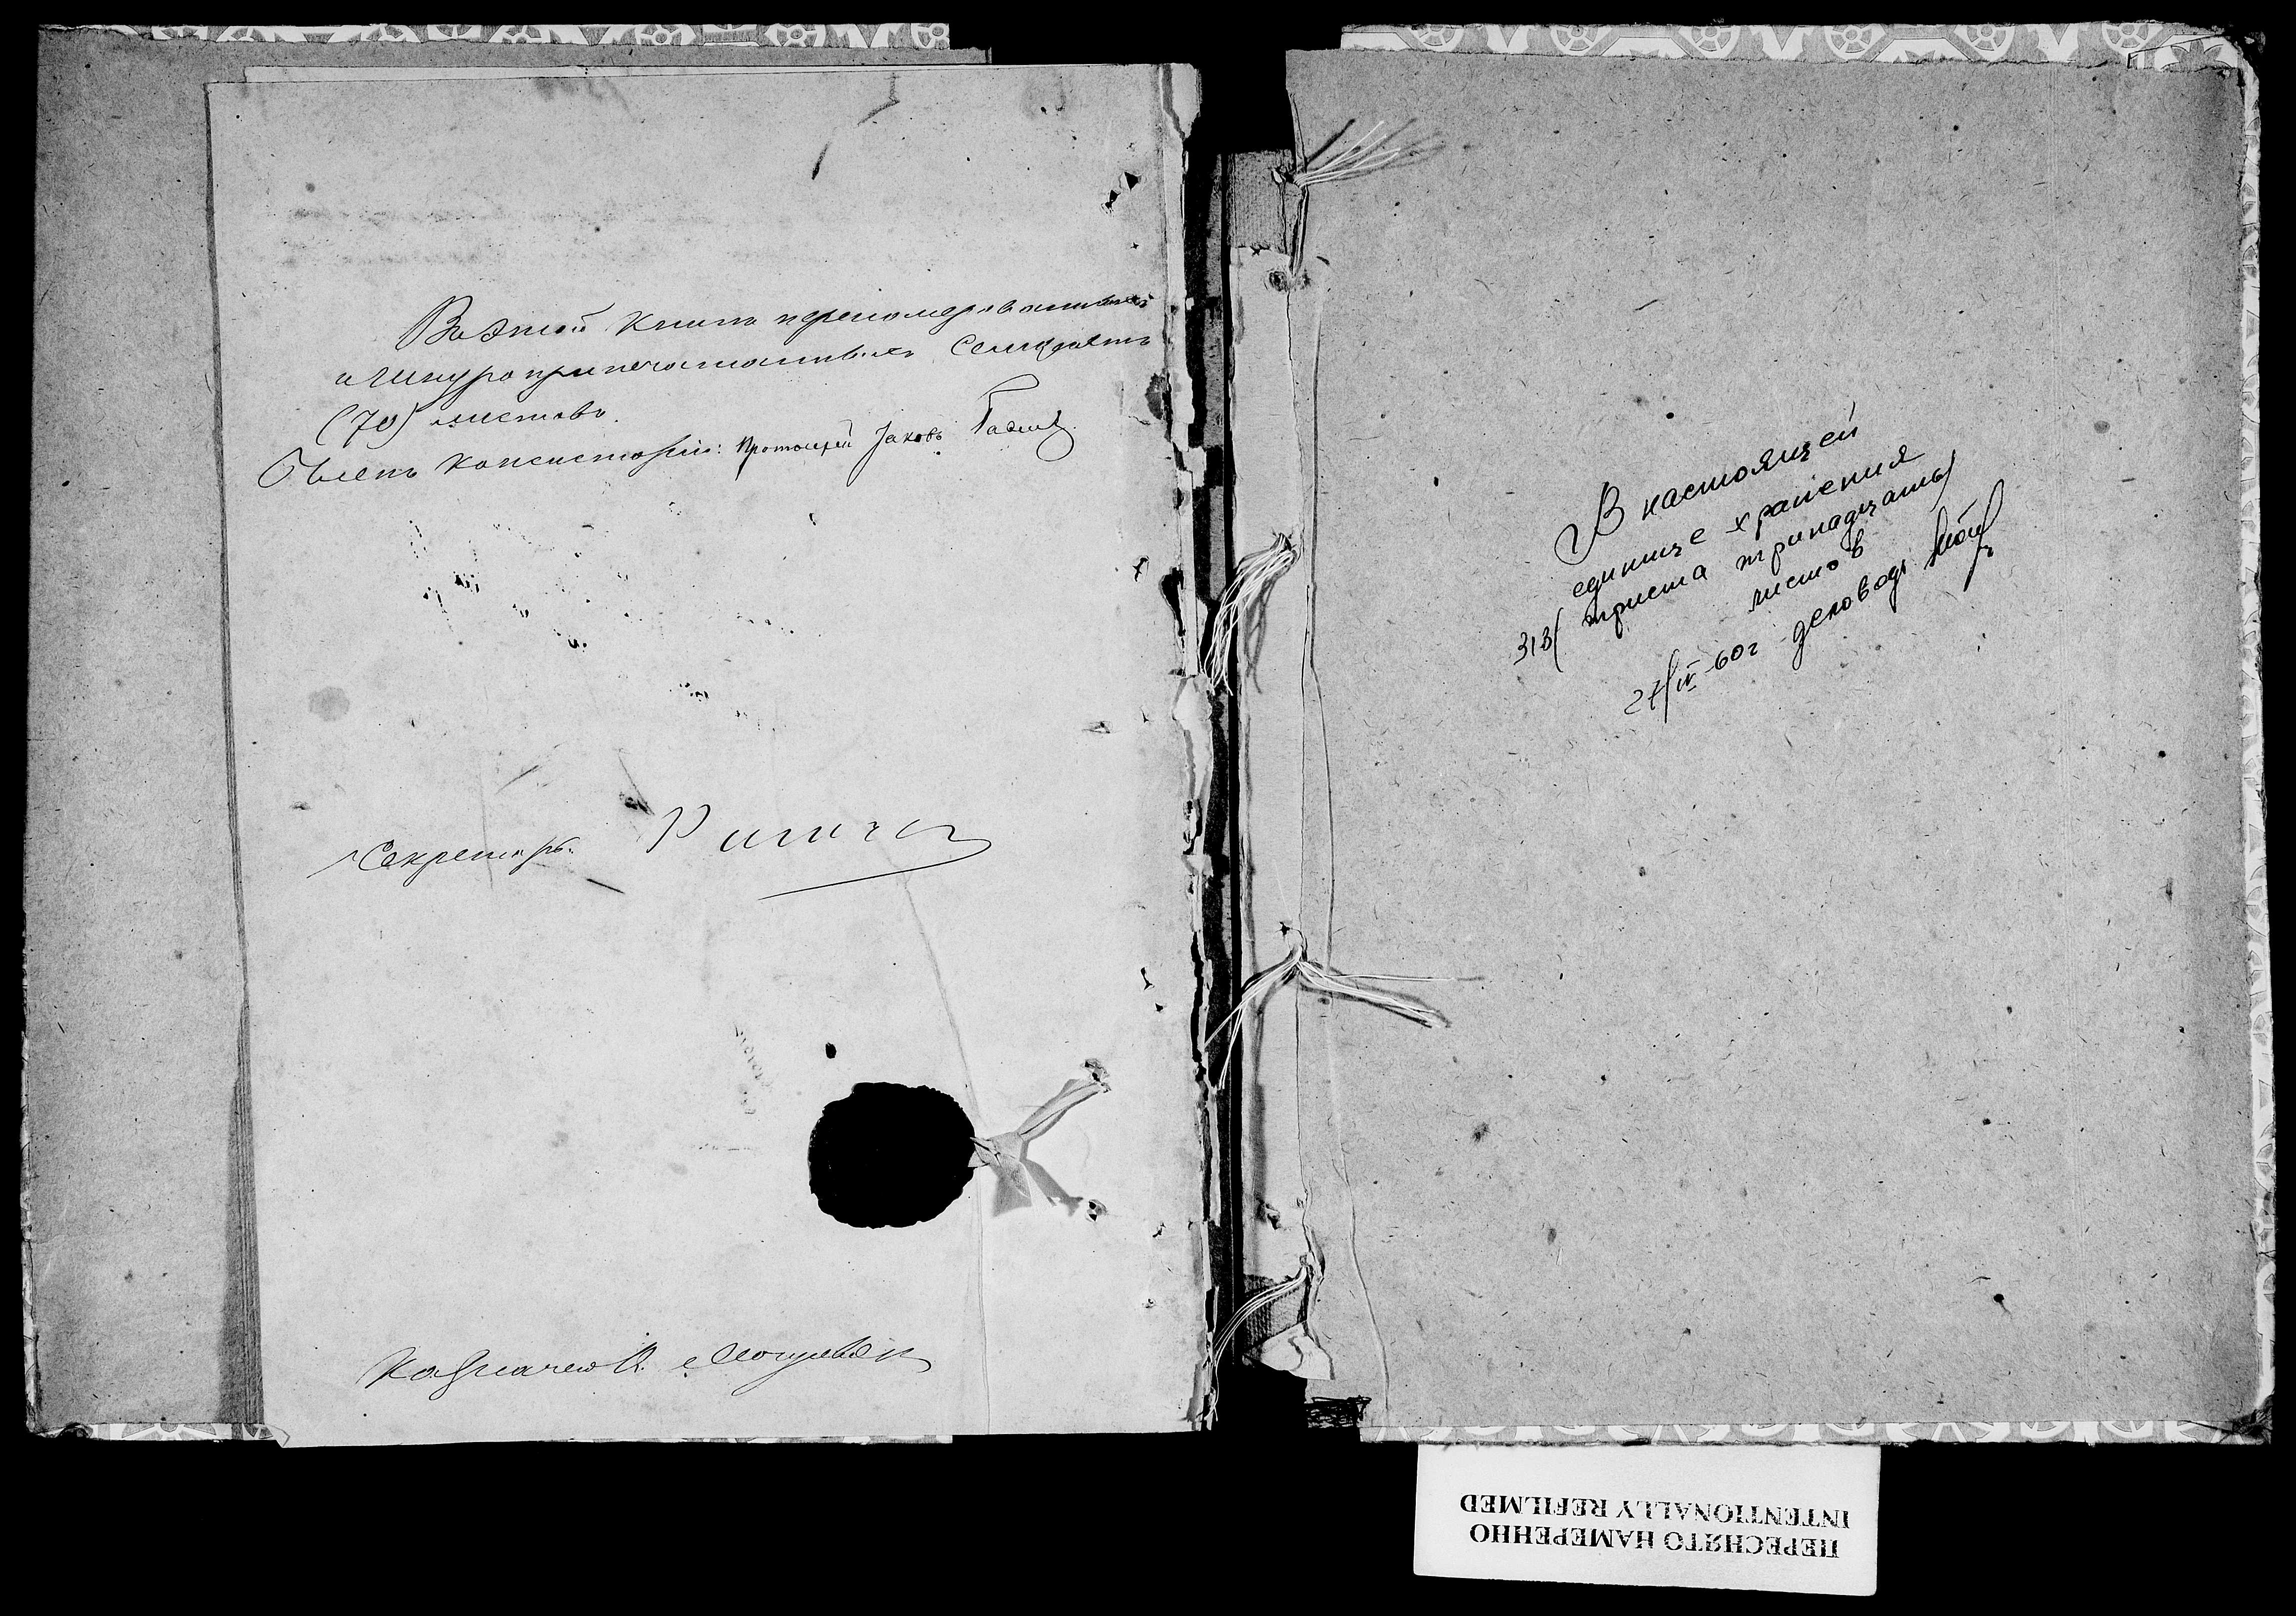 Въ этой книгѣ пренумерованныхъ
и шнуроприпечатанныхъ семьдесятъ
(70) листовъ.
Членъ Консисторіи: Протоіерей Іаковъ
Секретарь
Казначей
В настоящей
единице хранения
313 (триста тринадцать)
листов
27/IV-60г деловод
ПЕРЕСНЯТО НАМЕРЕННО
INTENTIONALLY REFILMED